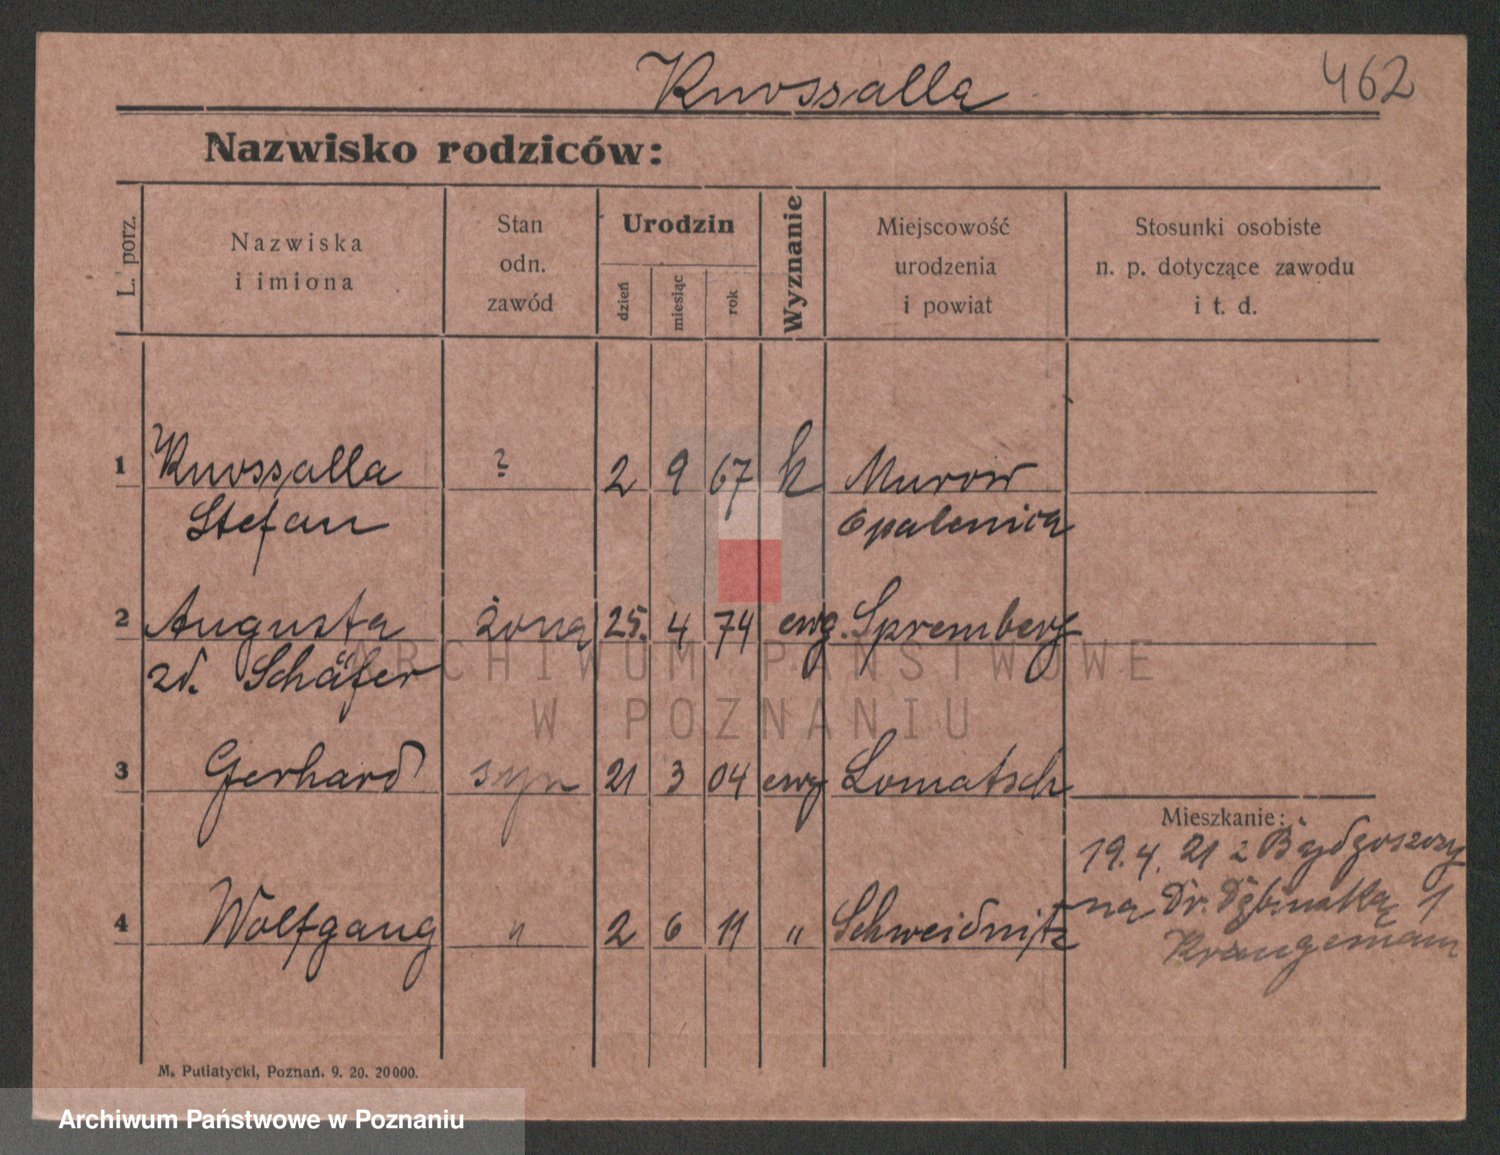 Knossalla 462
Nazwisko rodziców:
L. porz.
Nazwiska
i imiona
Stan
odn.
zawód
Urodzin
dzień
miesiąc
rok
Wyznanie
Miejscowość
urodzenia
i powiat
Stosunki osobiste
n. p. dotyczące zawodu
i t. d.
1 Knossalla ? 2 9 67 k Murow
Stefan Opalenica
2 Augusta żona 25. 4 74 ewg. Spremberg
zd. Schäfer
3 Gerhard syn 21 3 04 ewg Lomatsch
Mieszkanie:
19. 4. 21 z Bydgoszczy
4 Wolfgang " 2 6 11 " Schweidnitz
na Dr. Dębinską 1
M. Putiatycki, Poznań. 9. 20. 20000.
ARCHIWUM PAŃSTWOWE
W POZNANIU
Archiwum Państwowe w Poznaniu